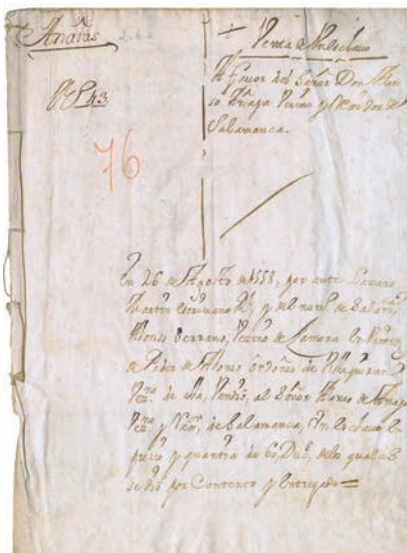 Anaias
76
Venta de Un Esclavo
A favor del Señor Don Alon
so Anaya Vezino y de
Salamanca.
En 26 de Agosto de 1558, por ante Lazaro
Martin escrivano Rl, y del num.o de Salam.ca
Alonso Serrano, Vezino de Zamora En
de Pedro de Alonso Ordoñes de
Vez.no de ella, Vendió, al Señor Alonso de Anaya
Vez.no y de Salamanca, Un Esclavo En
precio y quantia de 60, Duc.s, delos quales
se dió por Contento y Entregado=